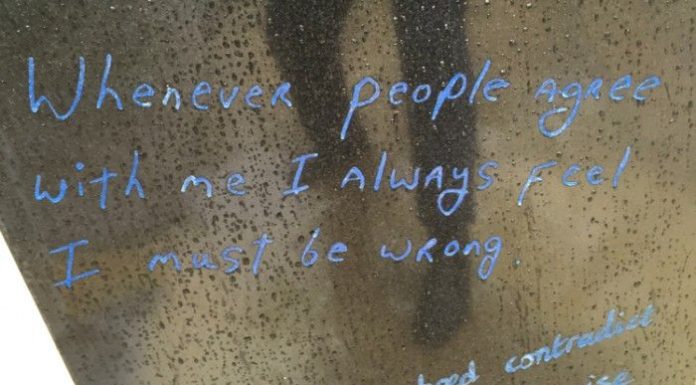 Whenever people agree
with me I always feel
I must be wrong.
contradict